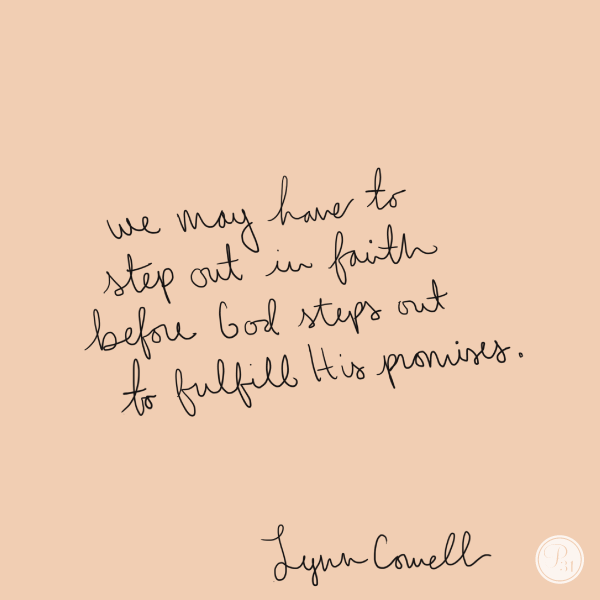 we may have to
step out in faith
before God steps out
to fulfill His promises.
Lynn Cowell
P31